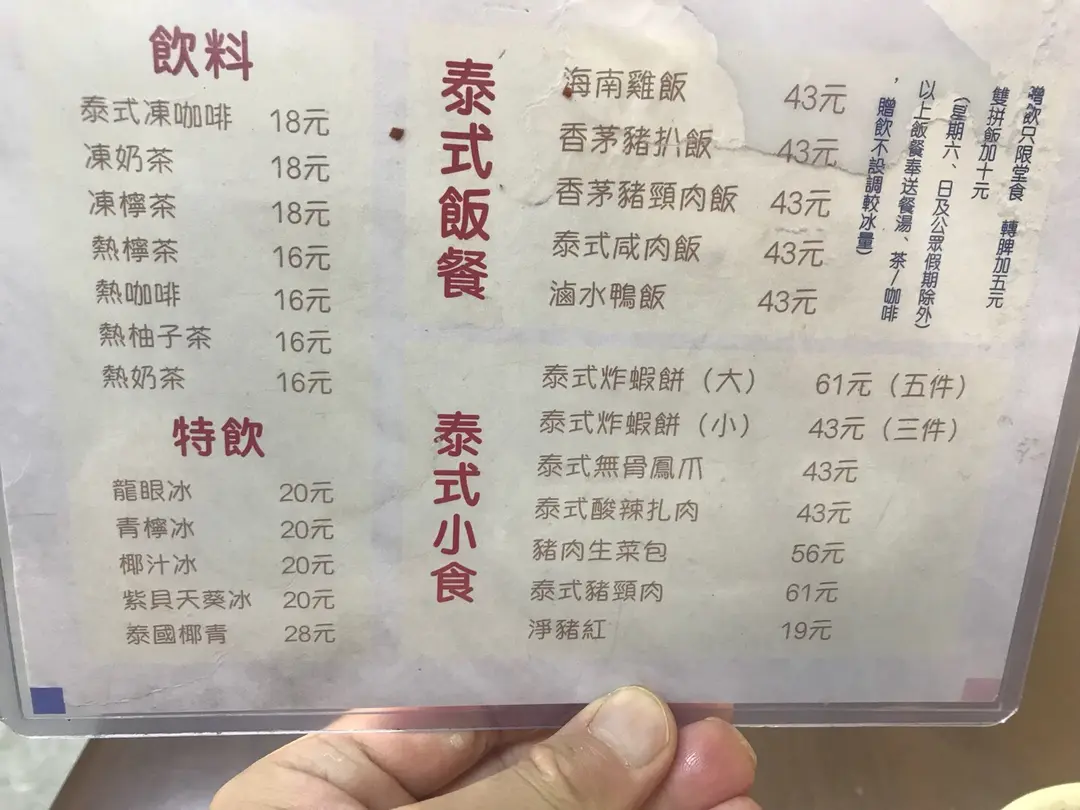 飲料
泰式凍咖啡 18元
凍奶茶 18元
凍檸茶 18元
熱檸茶 16元
熱咖啡 16元
熱柚子茶 16元
熱奶茶 16元
特飲
龍眼冰 20元
青檸冰 20元
椰汁冰 20元
紫貝天葵冰 20元
泰國椰青 28元
泰式飯餐
海南雞飯 43元
香茅豬扒飯 43元
香茅豬頸肉飯 43元
泰式咸肉飯 43元
滷水鴨飯 43元
贈飲只限堂食 轉脾加五元
雙拼飯加十元
(星期六、日及公眾假期除外)
以上飯餐奉送餐湯、茶/咖啡
，贈飲不設調較冰量)
泰式小食
泰式炸蝦餅（大） 61元（五件）
泰式炸蝦餅（小） 43元（三件）
泰式無骨鳳爪 43元
泰式酸辣扎肉 43元
豬肉生菜包 56元
泰式豬頸肉 61元
淨豬紅 19元